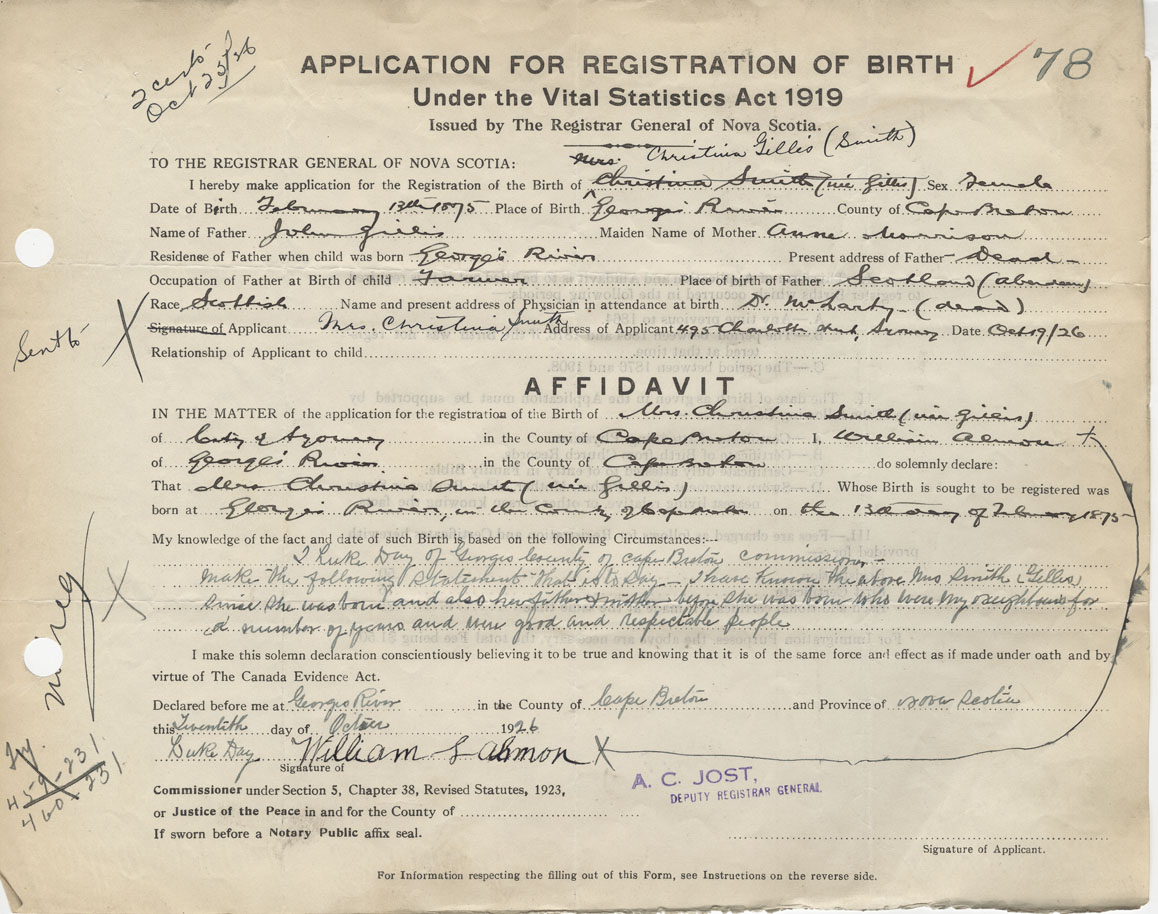 2 certs
Oct 25/26
APPLICATION FOR REGISTRATION OF BIRTH
78
Under the Vital Statistics Act 1919
Issued by The Registrar General of Nova Scotia.
Mrs. Christina Gillis (Smith)
TO THE REGISTRAR GENERAL OF NOVA SCOTIA:
I hereby make application for the Registration of the Birth of Christina Smith (nee Gillis) Sex Female
Date of Birth February 13th 1875 Place of Birth Georges River County of Cape Breton
Name of Father John Gillis Maiden Name of Mother Anne Morrison
Residense of Father when child was born George's River Present address of Father Dead
Occupation of Father at Birth of child Farmer Place of birth of Father Scotland (Aberdeen)
Race Scottish Name and present address of Physician in attendance at birth Dr. (dead)
Signature of Applicant Mrs. Christina Smith Address of Applicant 495 Charlotte Street, Sydney Date Oct 19/26
Sent to
Relationship of Applicant to child
AFFIDAVIT
IN THE MATTER of the application for the registration of the Birth of Mrs. Christina Smith (nee Gillis)
of City of Sydney in the County of Cape Breton I, William Almon
of George's River in the County of Cape Breton do solemnly declare:
That Mrs Christina Smith (nee Gillis) Whose Birth is sought to be registered was
born at Georges River, in the County of Cape Breton on the 13th day of February 1875
My knowledge of the fact and date of such Birth is based on the following Circumstances:--
I Luke Day of Georges County of cape Breton commissioner
make the following statement that is to say - I have known the above Mrs Smith (Gillis)
since she was born and also her father & mother before she was born who were my neighbours for
a number of years and were good and respectable people
I make this solemn declaration conscientiously believing it to be true and knowing that it is of the same force and effect as if made under oath and by
virtue of The Canada Evidence Act.
Declared before me at Georges River in the County of Cape Breton and Province of Nova Scotia
this Twentieth day of 1926
Luke Day William L Almon X
Signature of
A. C. JOST,
DEPUTY REGISTRAR GENERAL
459-231
460-231
Commissioner under Section 5, Chapter 38, Revised Statutes, 1923,
or Justice of the Peace in and for the County of
If sworn before a Notary Public affix seal.
Signature of Applicant.
For Information respecting the filling out of this Form, see Instructions on the reverse side.